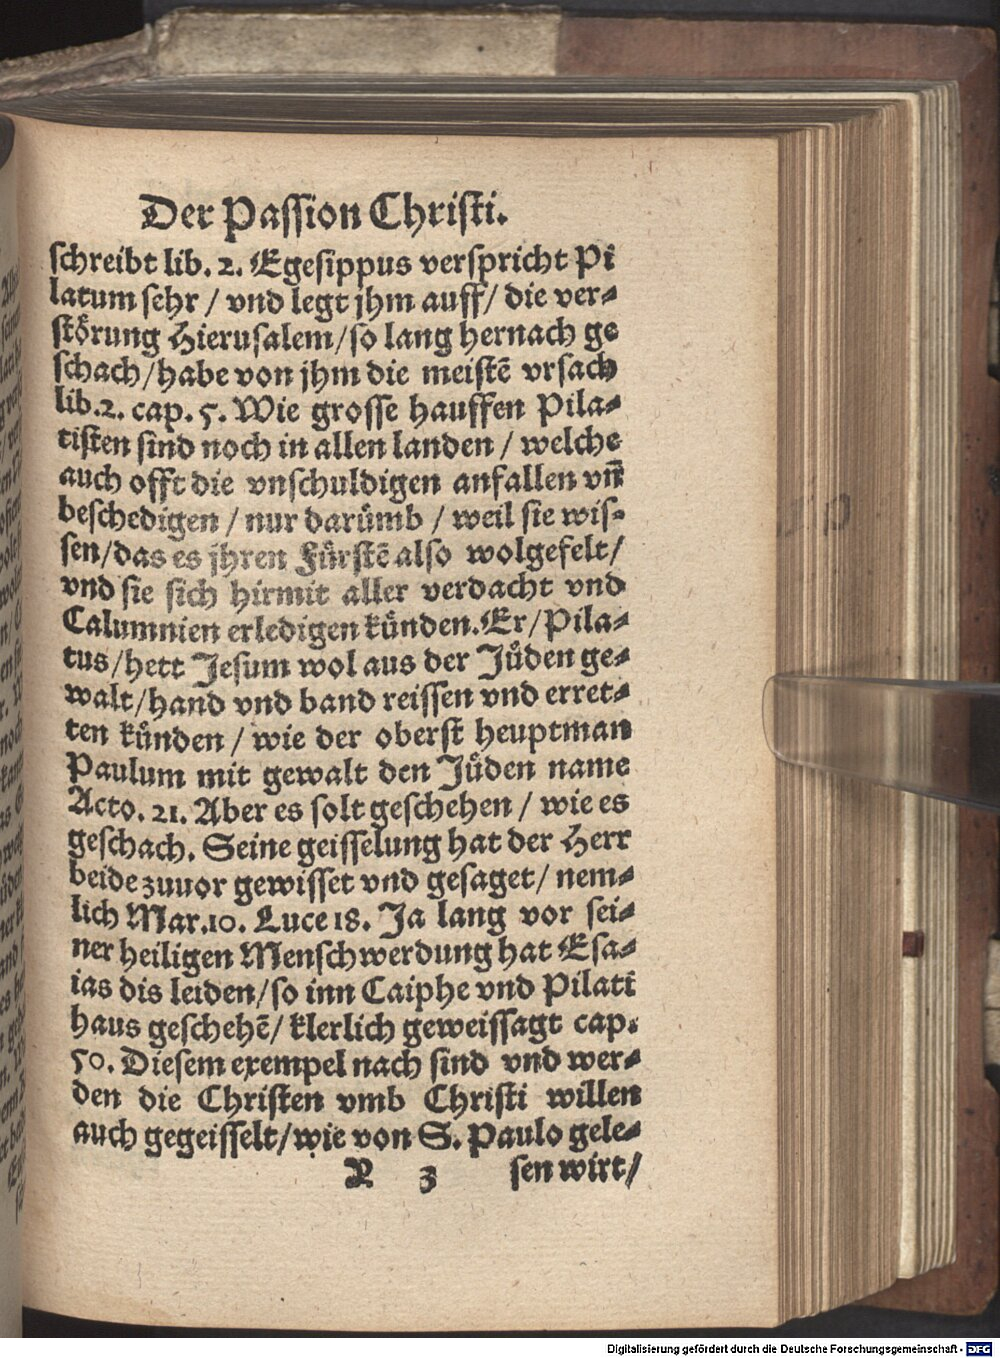 Der Passion Christi.
schreibt lib. 2. Egesippus verspricht Pi
latum sehr / vnd legt jhm auff / die ver⸗
stoͤrung Hierusalem / so lang hernach ge
schach / habe von jhm die meistẽ vrsach
lib. 2. cap. 5. Wie grosse hauffen Pila⸗
tisten sind noch in allen landen / welche
auch offt die vnschuldigen anfallen vnd̃
beschedigen / nur daruͤmb / weil sie wis⸗
sen / das es jhren Fuͤrstẽ also wolgefelt /
vnd sie sich hirmit aller verdacht vnd
Calumnien erledigen kuͤnden. Er / Pila⸗
tus / hett Jesum wol aus der Juͤden ge⸗
walt / hand vnd band reissen vnd erret⸗
ten kuͤnden / wie der oberst heuptman
Paulum mit gewalt den Juͤden name
Acto. 21. Aber es solt geschehen / wie es
geschach. Seine geisselung hat der Herr
beide zuuor gewisset vnd gesaget / nem⸗
lich Mar. 10. Luce 18. Ja lang vor sei⸗
ner heiligen Menschwerdung hat Esa⸗
ias dis leiden / so inn Caiphe vnd Pilati
haus geschehẽ / klerlich geweissagt cap.
50. Diesem exempel nach sind vnd wer⸗
den die Christen vmb Christi willen
auch gegeisselt / wie von S. Paulo gele⸗
R 3 sen wirt /
Digitalisierung gefördert durch die Deutsche Forschungsgemeinschaft - DFG